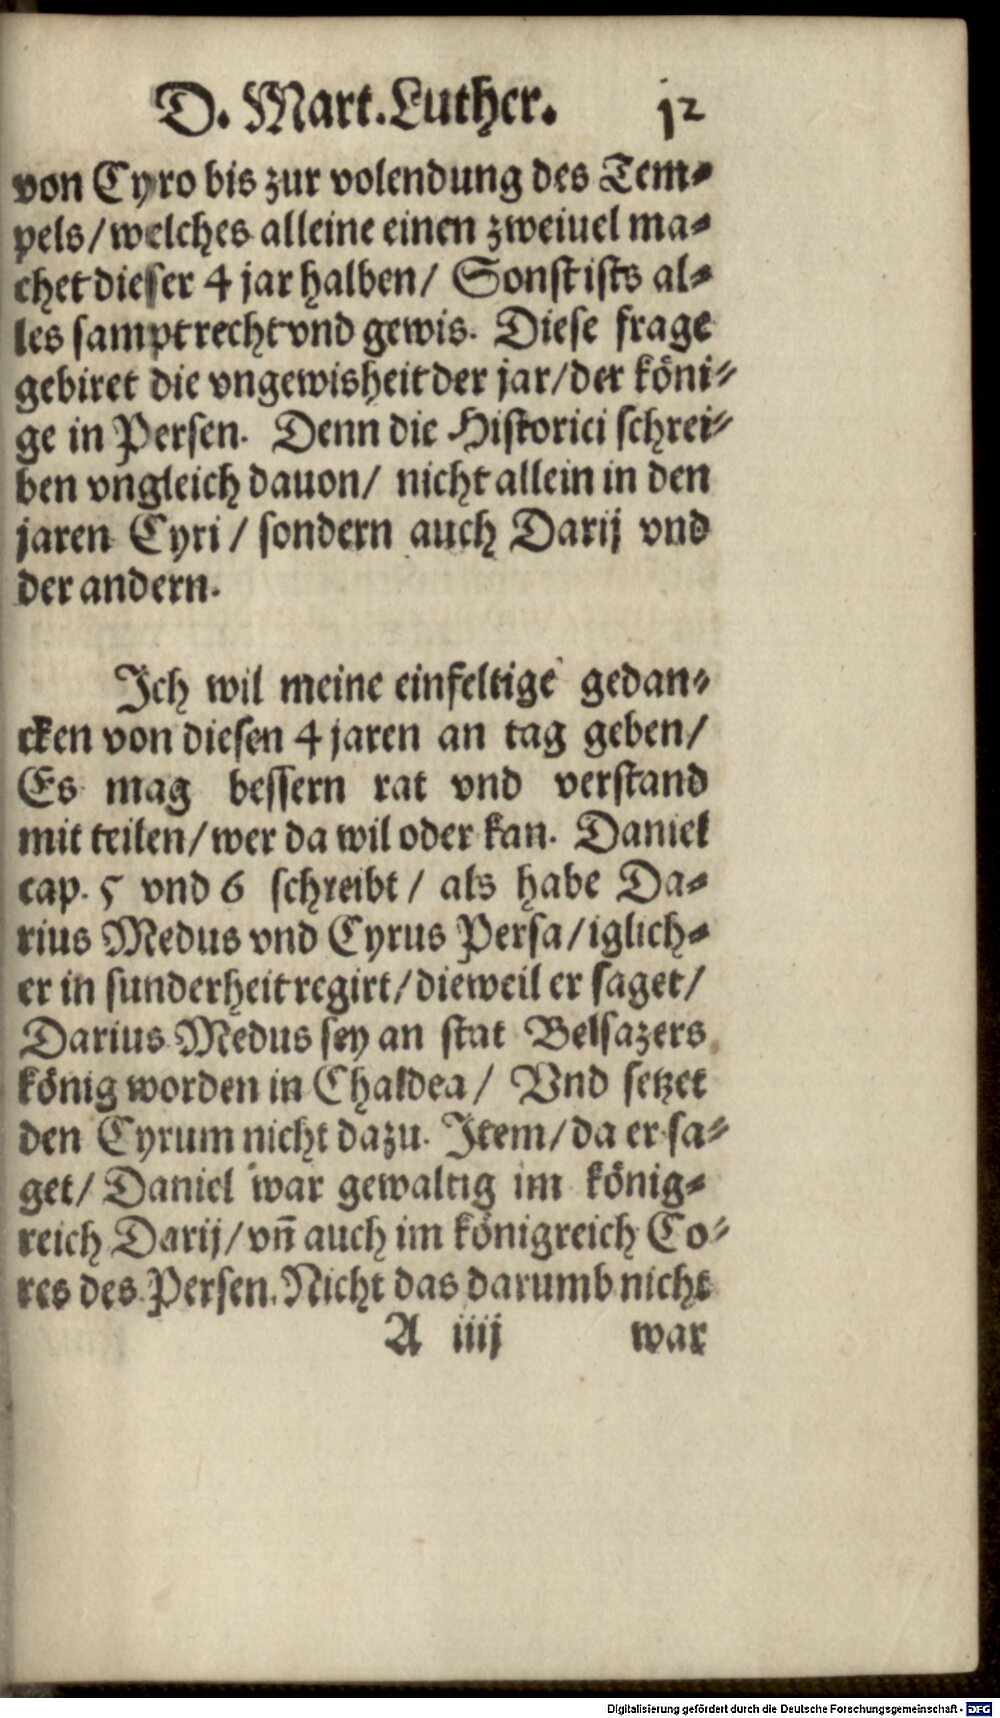 D. Mart. Luther. 12
von Cyro bis zur volendung des Tem⸗
pels/welches alleine einen zweiuel ma⸗
chet dieser 4 jar halben/ Sonst ists al⸗
les sampt recht vnd gewis. Diese frage
gebiret die vngewisheit der jar/der köni⸗
ge in Persen. Denn die Historici schrei⸗
ben vngleich dauon/ nicht allein in den
jaren Cyri / sondern auch Darij vnd
der andern.
Ich wil meine einfeltige gedan⸗
cken von diesen 4 jaren an tag geben/
Es mag bessern rat vnd verstand
mit teilen/wer da wil oder kan. Daniel
cap. 5 vnd 6 schreibt / als habe Da⸗
rius Medus vnd Cyrus Persa/iglich⸗
er in sunderheit regirt/dieweil er saget/
Darius Medus sey an stat Belsazers
könig worden in Chaldea/ Vnd setzet
den Cyrum nicht dazu. Item/da er sa⸗
get/ Daniel war gewaltig im könig⸗
reich Darij/vn̄ auch im königreich Co⸗
res des Persen. Nicht das darumb nicht
A iiij war
Digitalisierung gefördert durch die Deutsche Forschungsgemeinschaft - DFG